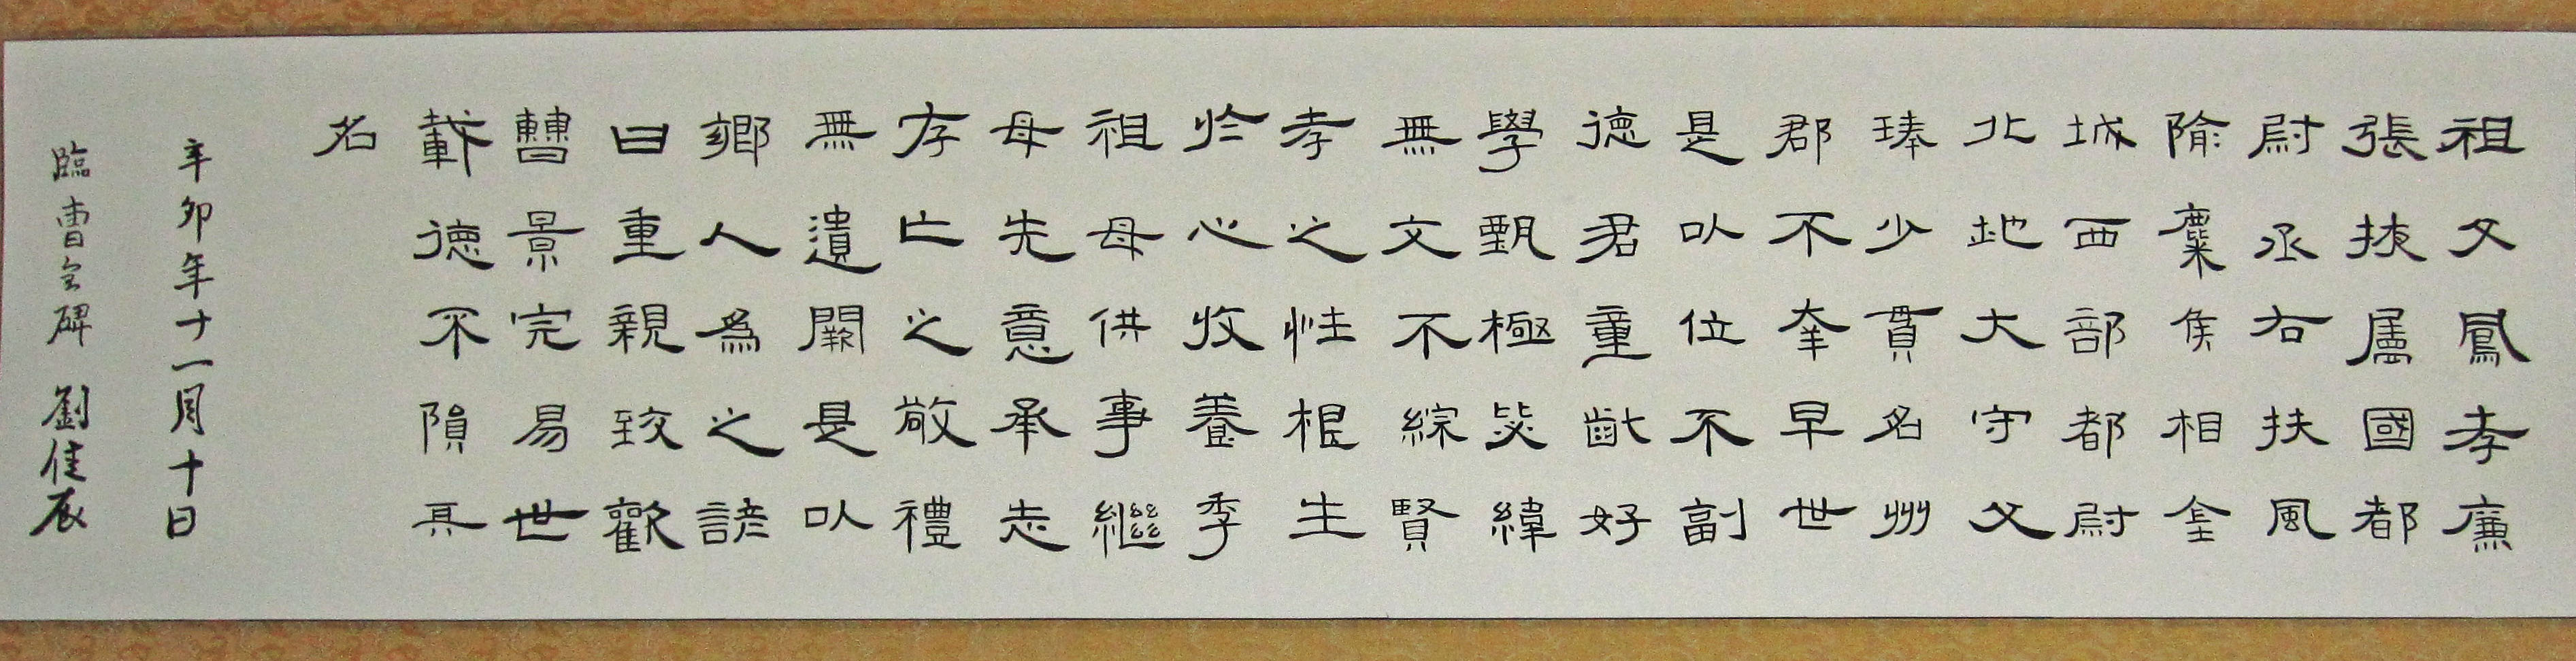 祖父鳳孝廉
張掖屬國都
尉丞右扶風
隃麋侯相金
城西部都尉
北地大守父
琫少貫名州
郡不幸早世
是以位不副
德君童齔好
學甄極毖緯
無文不綜賢
孝之性根生
於心收養季
祖母供事繼
母先意承志
存亡之敬禮
無遺闕是以
鄉人為之諺
曰重親致歡
曹景完易世
載德不隕其
名
辛卯年十一月十日
臨曹全碑 劉佳辰